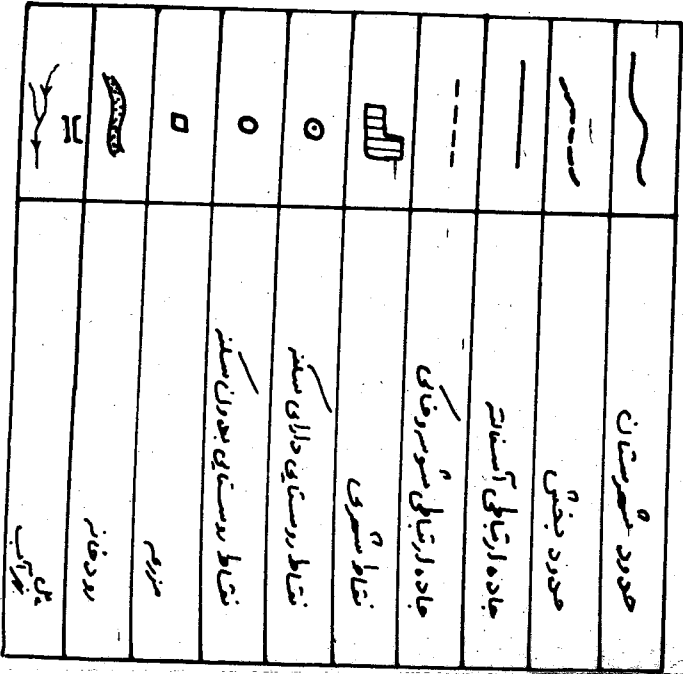 حدود شهرستان
حدود بخش
جاده ارتباطی آسفالته
جاده ارتباطی شوسه و خاکی
نقاط شهری
نقاط روستایی دارای سکنه
نقاط روستایی بدون سکنه
مزرعه
رودخانه
پل
نهر آب